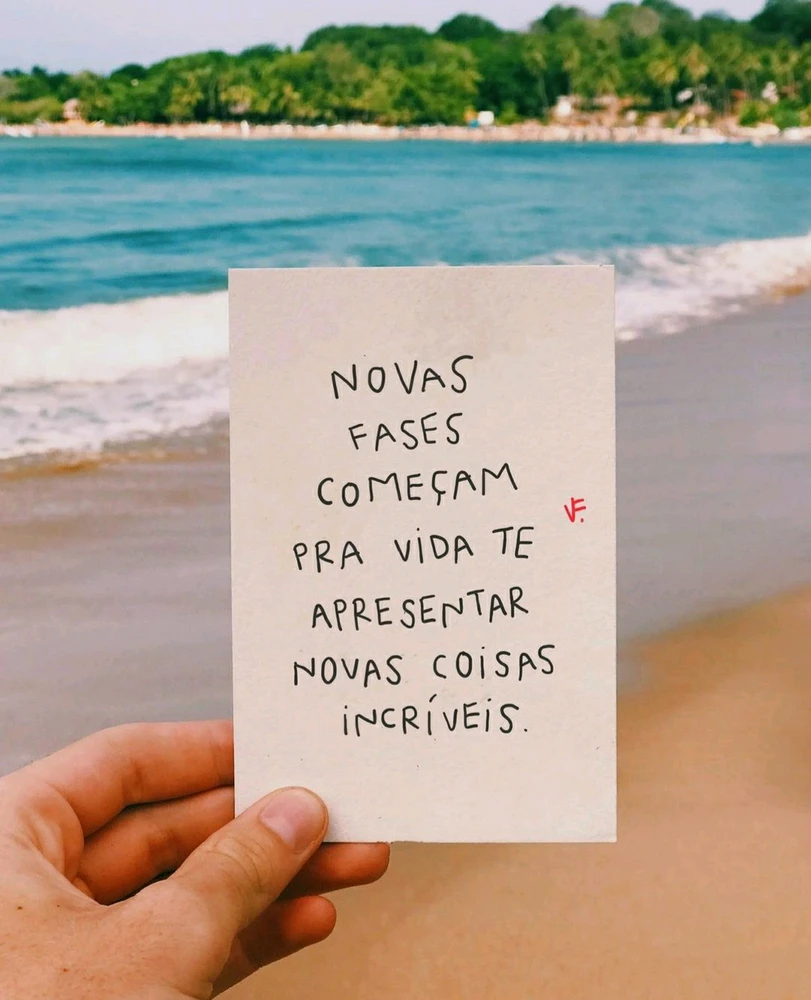 NOVAS
FASES
COMEÇAM
VF.
PRA VIDA TE
APRESENTAR
NOVAS COISAS
INCRÍVEIS.